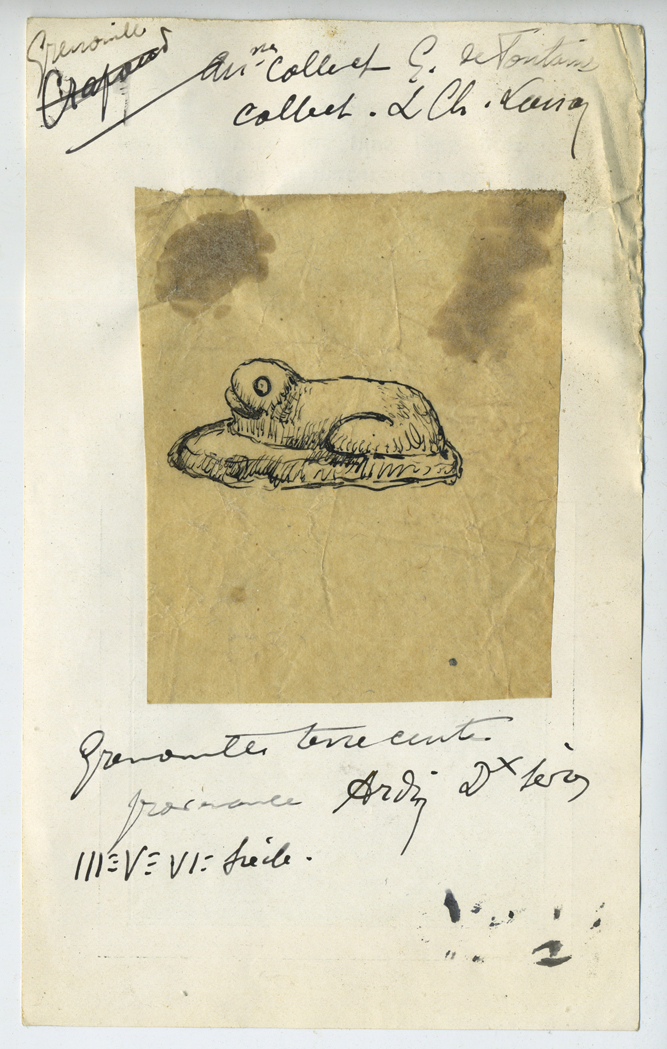 Grenouille
Crapaud
Anne collect G. de Fontaine
collect. L Ch.
Grenouille terre cuite
provenance Ardin Dx Sèvres
IIIe Ve VIe Siècle.